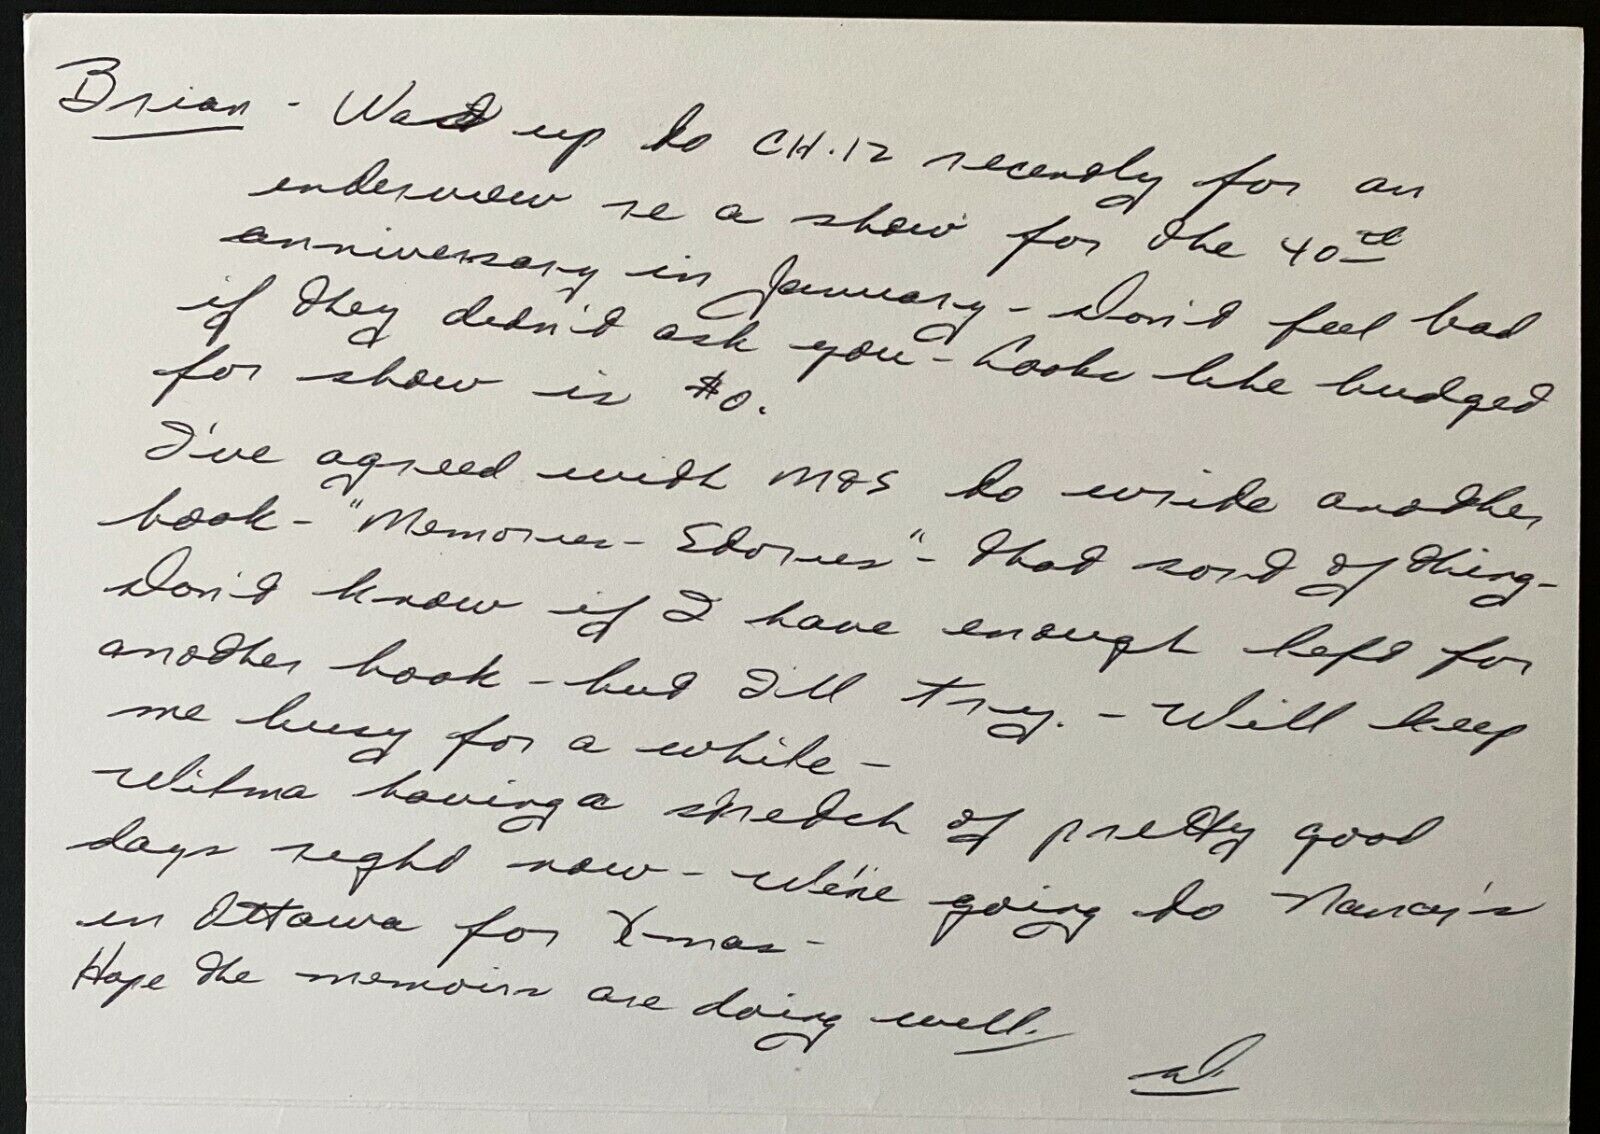 Brian - Was up to CH.12 recently for an
interview re a show for the 40th
anniversary in January - Don't feel bad
if they didn't ask you - Looks like budget
for show is $0.
I've agreed with M&S to write another
book - "Memories - Stories" - that sort of thing -
Don't know if I have enough left for
another book - but I'll try. - Will keep
me busy for a while -
Wilma having a stretch of pretty good
days right now - We're going to Nancy's
in Ottawa for X-mas -
Hope the memoirs are doing well.